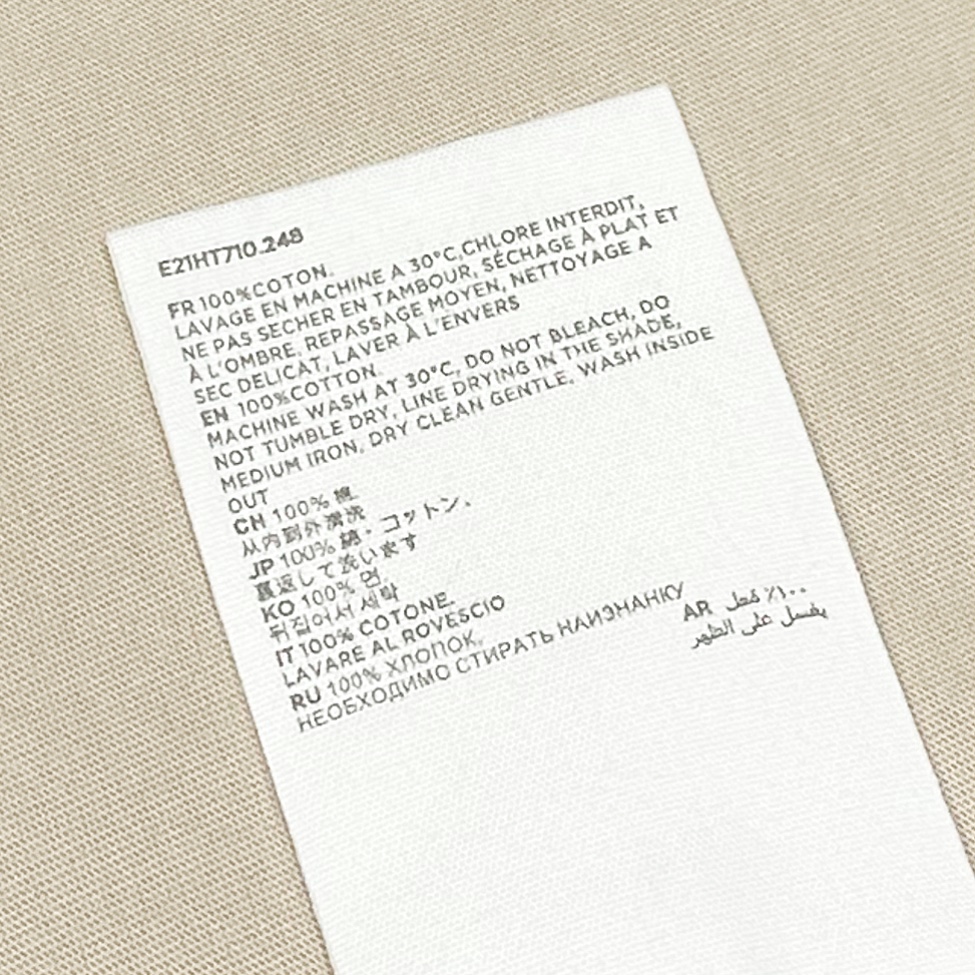 E21HT710.248
FR 100%COTON.
LAVAGE EN MACHINE A 30°C,CHLORE INTERDIT,
NE PAS SECHER EN TAMBOUR, SÉCHAGE À PLAT ET
À L'OMBRE, REPASSAGE MOYEN, NETTOYAGE A
SEC DELICAT, LAVER À L'ENVERS
EN 100%COTTON.
MACHINE WASH AT 30°C, DO NOT BLEACH, DO
NOT TUMBLE DRY, LINE DRYING IN THE SHADE,
MEDIUM IRON, DRY CLEAN GENTLE, WASH INSIDE
OUT
CH 100% 棉.
从内到外清洗
JP 100% 綿・コットン.
裏返して洗います
KO 100% 면.
뒤집어서 세탁
IT 100% COTONE.
LAVARE AL ROVESCIO
RU 100% ХЛОПОК.
НЕОБХОДИМО СТИРАТЬ НАИЗНАНКУ
AR ١٠٠٪ قطن
يغسل على الظهر